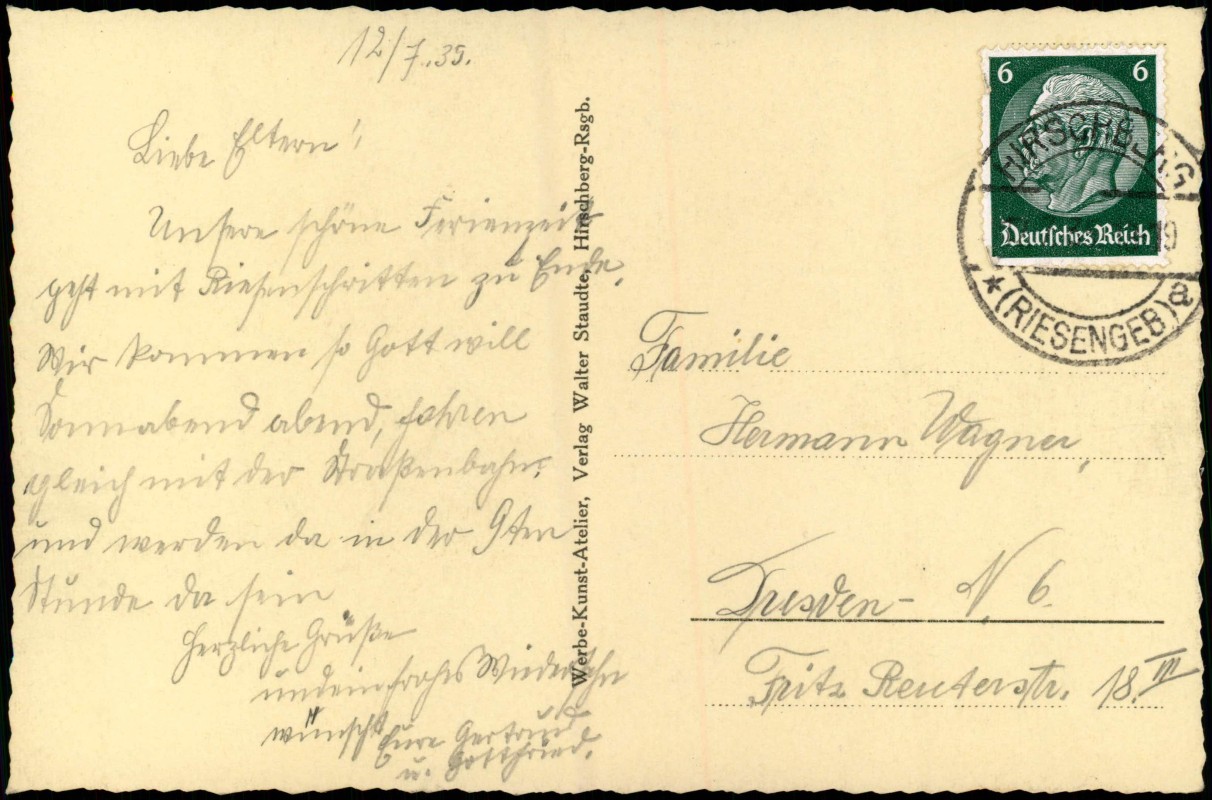 12/7.35.
Liebe Eltern!
Unsere schöne Ferienzeit
geht mit Riesenschritten zu Ende.
Wir kommen so Gott will
Sonnabend abend, fahren
gleich mit der Straßenbahn.
und werden da in der 9ten
Stunde da sein
Herzliche Grüße
und ein frohes Wiedersehn
wünscht Eure Gertrud
u. Gottfried.
Werbe-Kunst-Atelier, Verlag Walter Staudte, Hirschberg-Rsgb.
6 6
Deutsches Reich
HIRSCHBERG
19
a
(RIESENGEB)
Familie
Hermann Wagner,
Dresden- N 6.
Fritz Reuterstr. 18.III